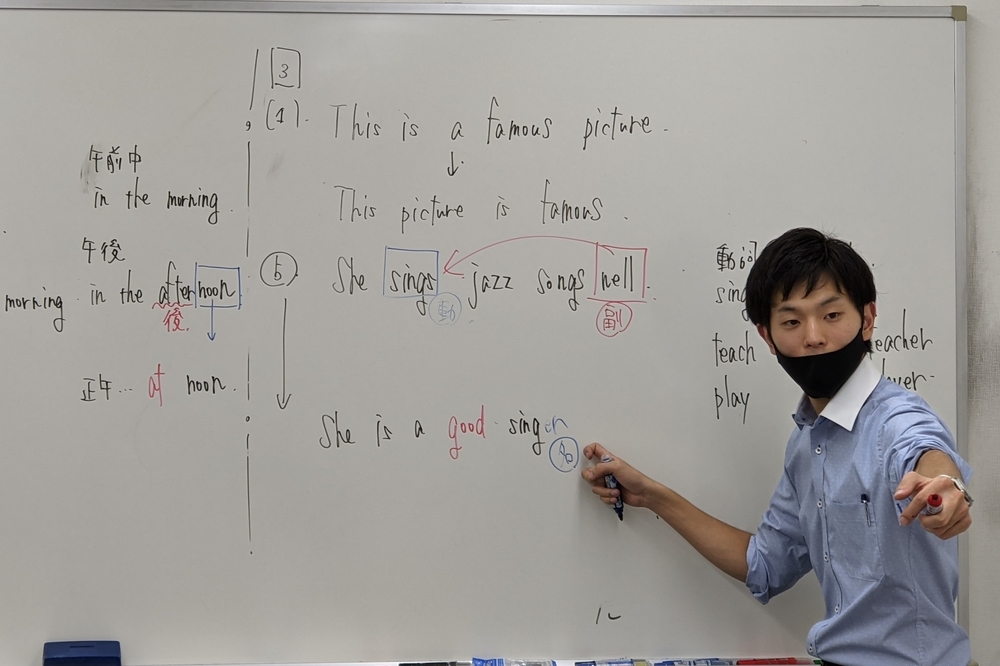 午前中
in the morning.
午後
morning in the afternoon
後
正午… at noon.
3
(1). This is a famous picture.
↓
This picture is famous.
5 She sings jazz songs well.
動 副
She is a good singer
名
動詞
sing
teach teacher
play